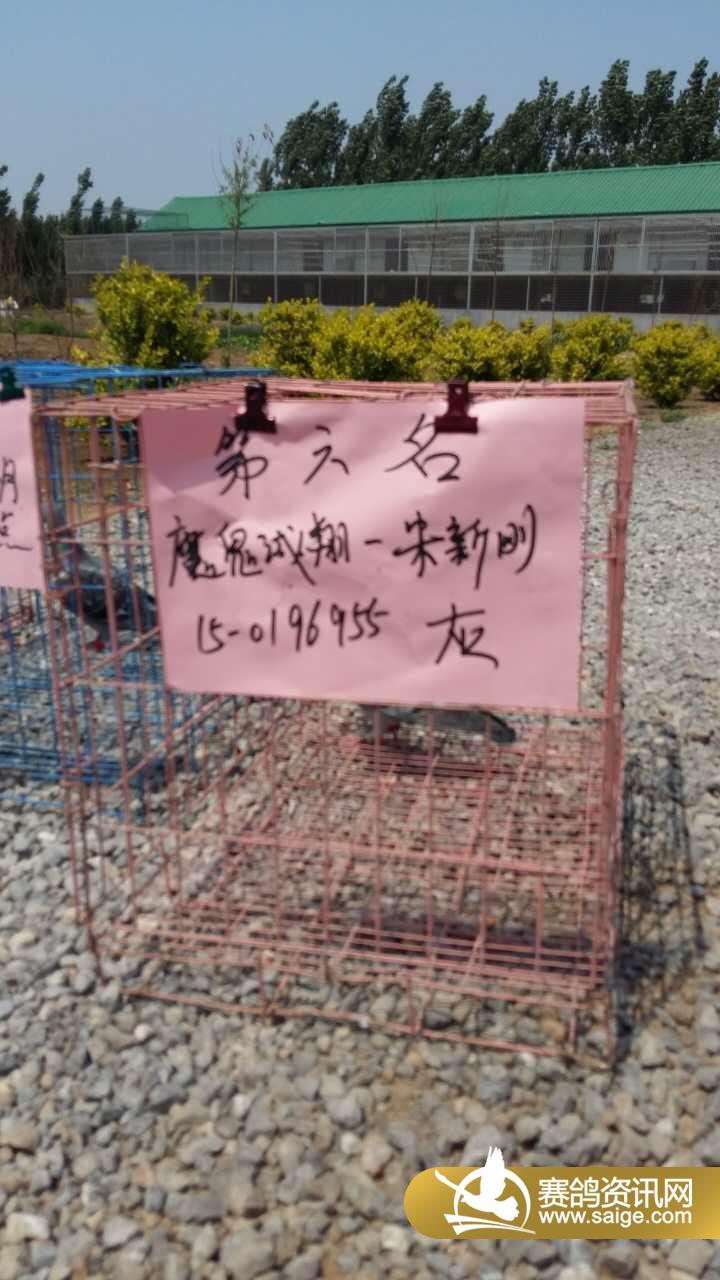 第六名
魔鬼战翔-宋新刚
15-0196955 灰
赛鸽资讯网
www.saige.com